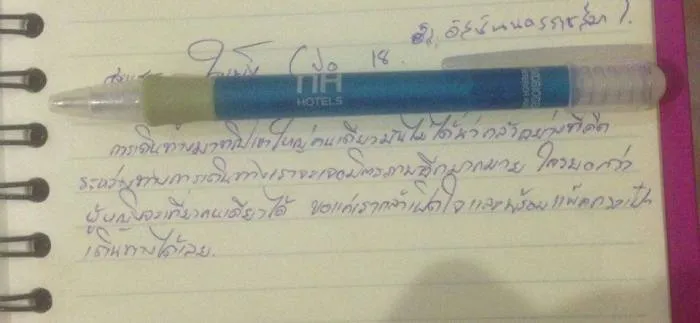 รร. อัสสัมนครราชสีมา).
18.
nH
HOTELS
การเดินทางมาเที่ยวเขาใหญ่คนเดียวมันไม่ได้น่ากลัวอย่างที่คิด
ระหว่างทางการเดินทางเราจะเจอมิตรภาพอีกมากมาย ใครบอกว่า
ผู้หญิงจะเที่ยวคนเดียวไม่ได้ ขอแค่เรากล้าเปิดใจ และพร้อมแพ็คกระเป๋า
เดินทางได้เลย.